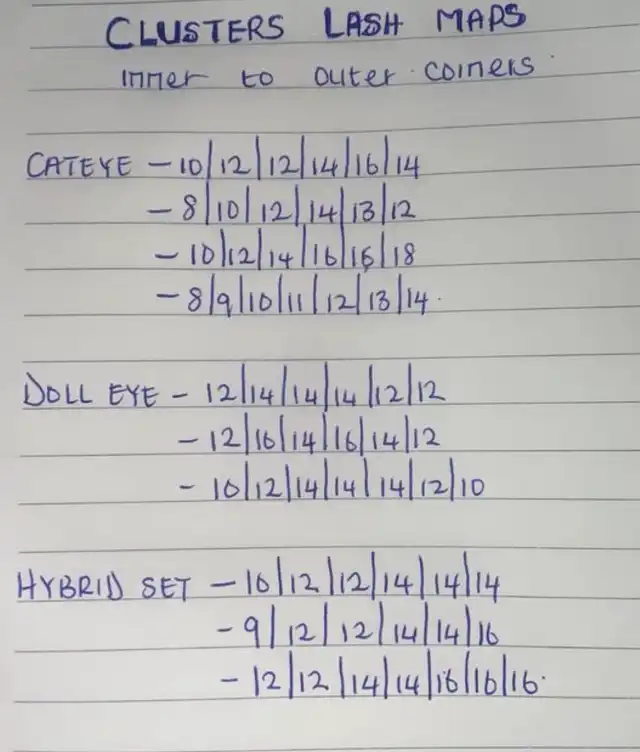 CLUSTERS LASH MAPS
inner to outer corners
CATEYE - 10/12/12/14/16/14
- 8/10/12/14/13/12
- 10/12/14/16/16/18
- 8/9/10/11/12/13/14.
DOLL EYE - 12/14/14/14/12/12
- 12/16/14/16/14/12
- 10/12/14/14/14/12/10
HYBRID SET - 10/12/12/14/14/14
- 9/12/12/14/14/16
- 12/12/14/14/16/16/16.